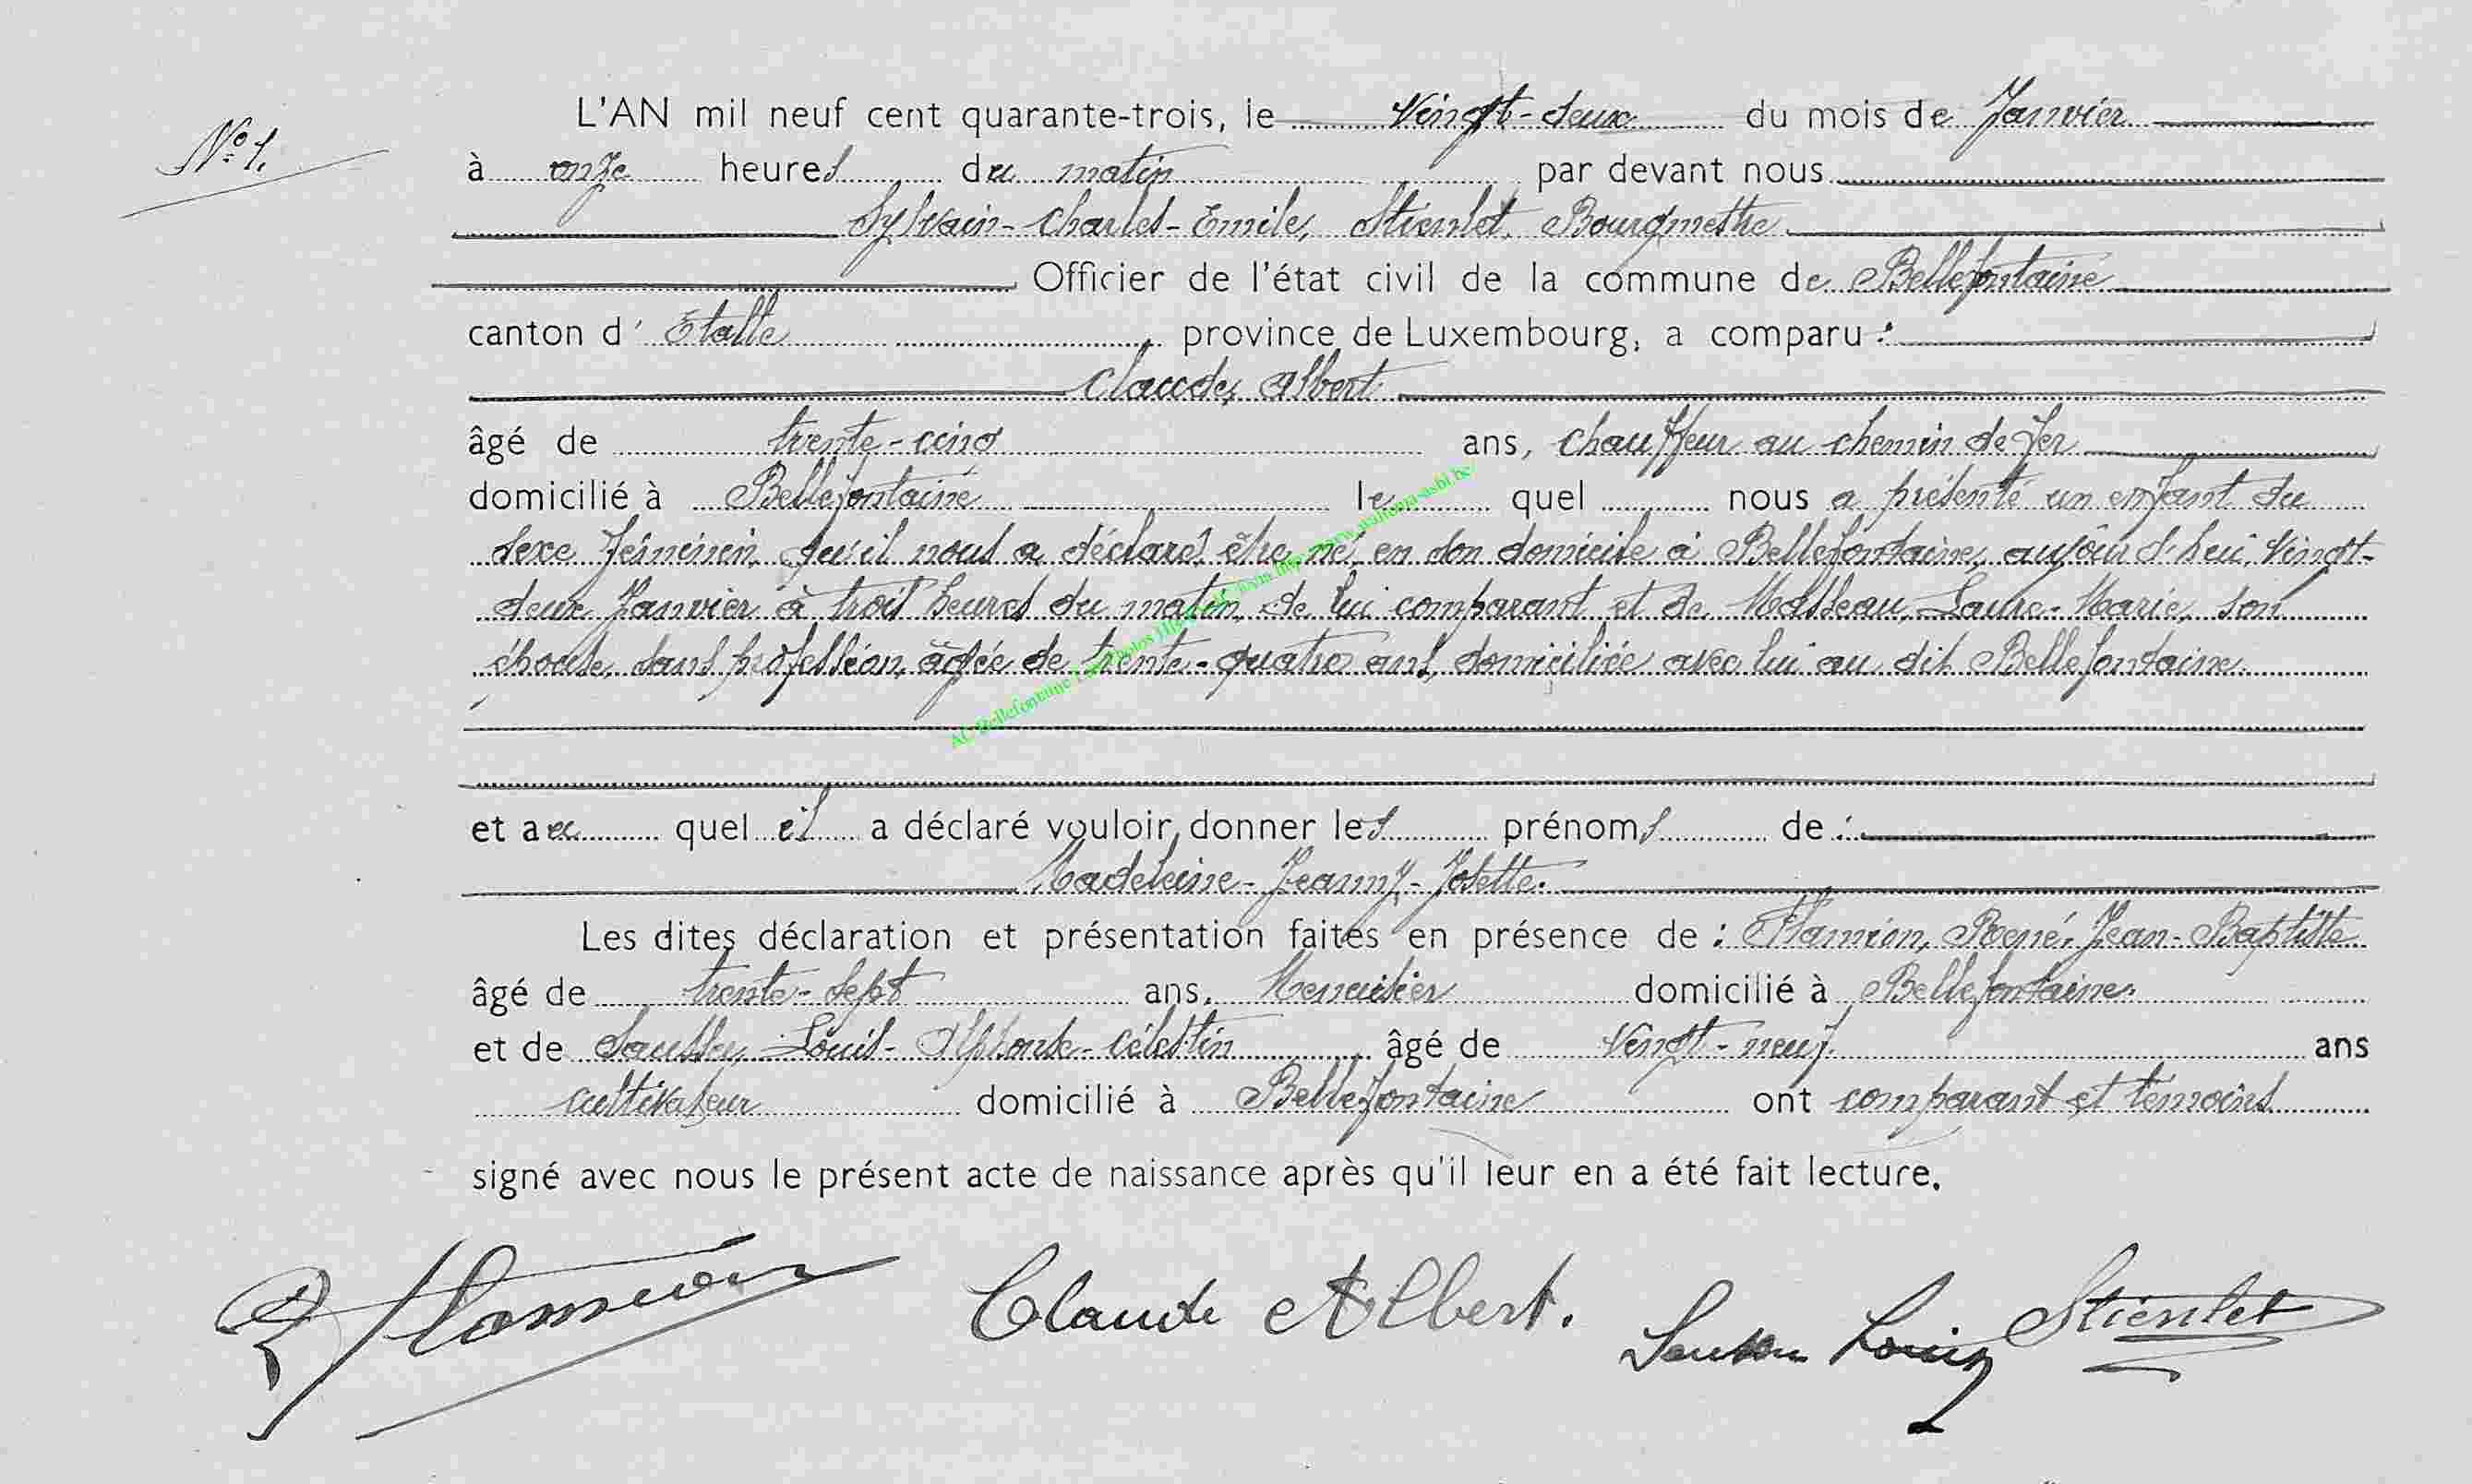 N° 1.
L'AN mil neuf cent quarante-trois, le Vingt-deux du mois de Janvier
à onze heures du matin par devant nous
Sylvain-Charles-Emile, Stienlet, Bourgmestre
Officier de l'état civil de la commune de Bellefontaine
canton d' Etalle province de Luxembourg, a comparu :
Claude, Albert
âgé de trente-cinq ans, chauffeur au chemin de fer
domicilié à Bellefontaine le quel nous a présenté un enfant du
sexe féminin, qu'il nous a déclaré être né en son domicile à Bellefontaine, aujourd'hui, Vingt-
deux Janvier à trois heures du matin, de lui comparant et de Masseau, Laure-Marie, son
épouse, sans profession, âgée de trente-quatre ans, domiciliée avec lui au dit Bellefontaine.
et au quel il a déclaré vouloir donner les prénoms de :
Madeleine-Jeanny-Josette.
Les dites déclaration et présentation faites en présence de : Flamion, René-Jean-Baptiste
âgé de trente-sept ans, Menuisier domicilié à Bellefontaine.
et de Louis-Alphonse-Célestin âgé de Vingt-neuf ans
cultivateur domicilié à Bellefontaine ont comparant et témoins
signé avec nous le présent acte de naissance après qu'il leur en a été fait lecture.
R Flamion Claude Albert. Louis Stienlet